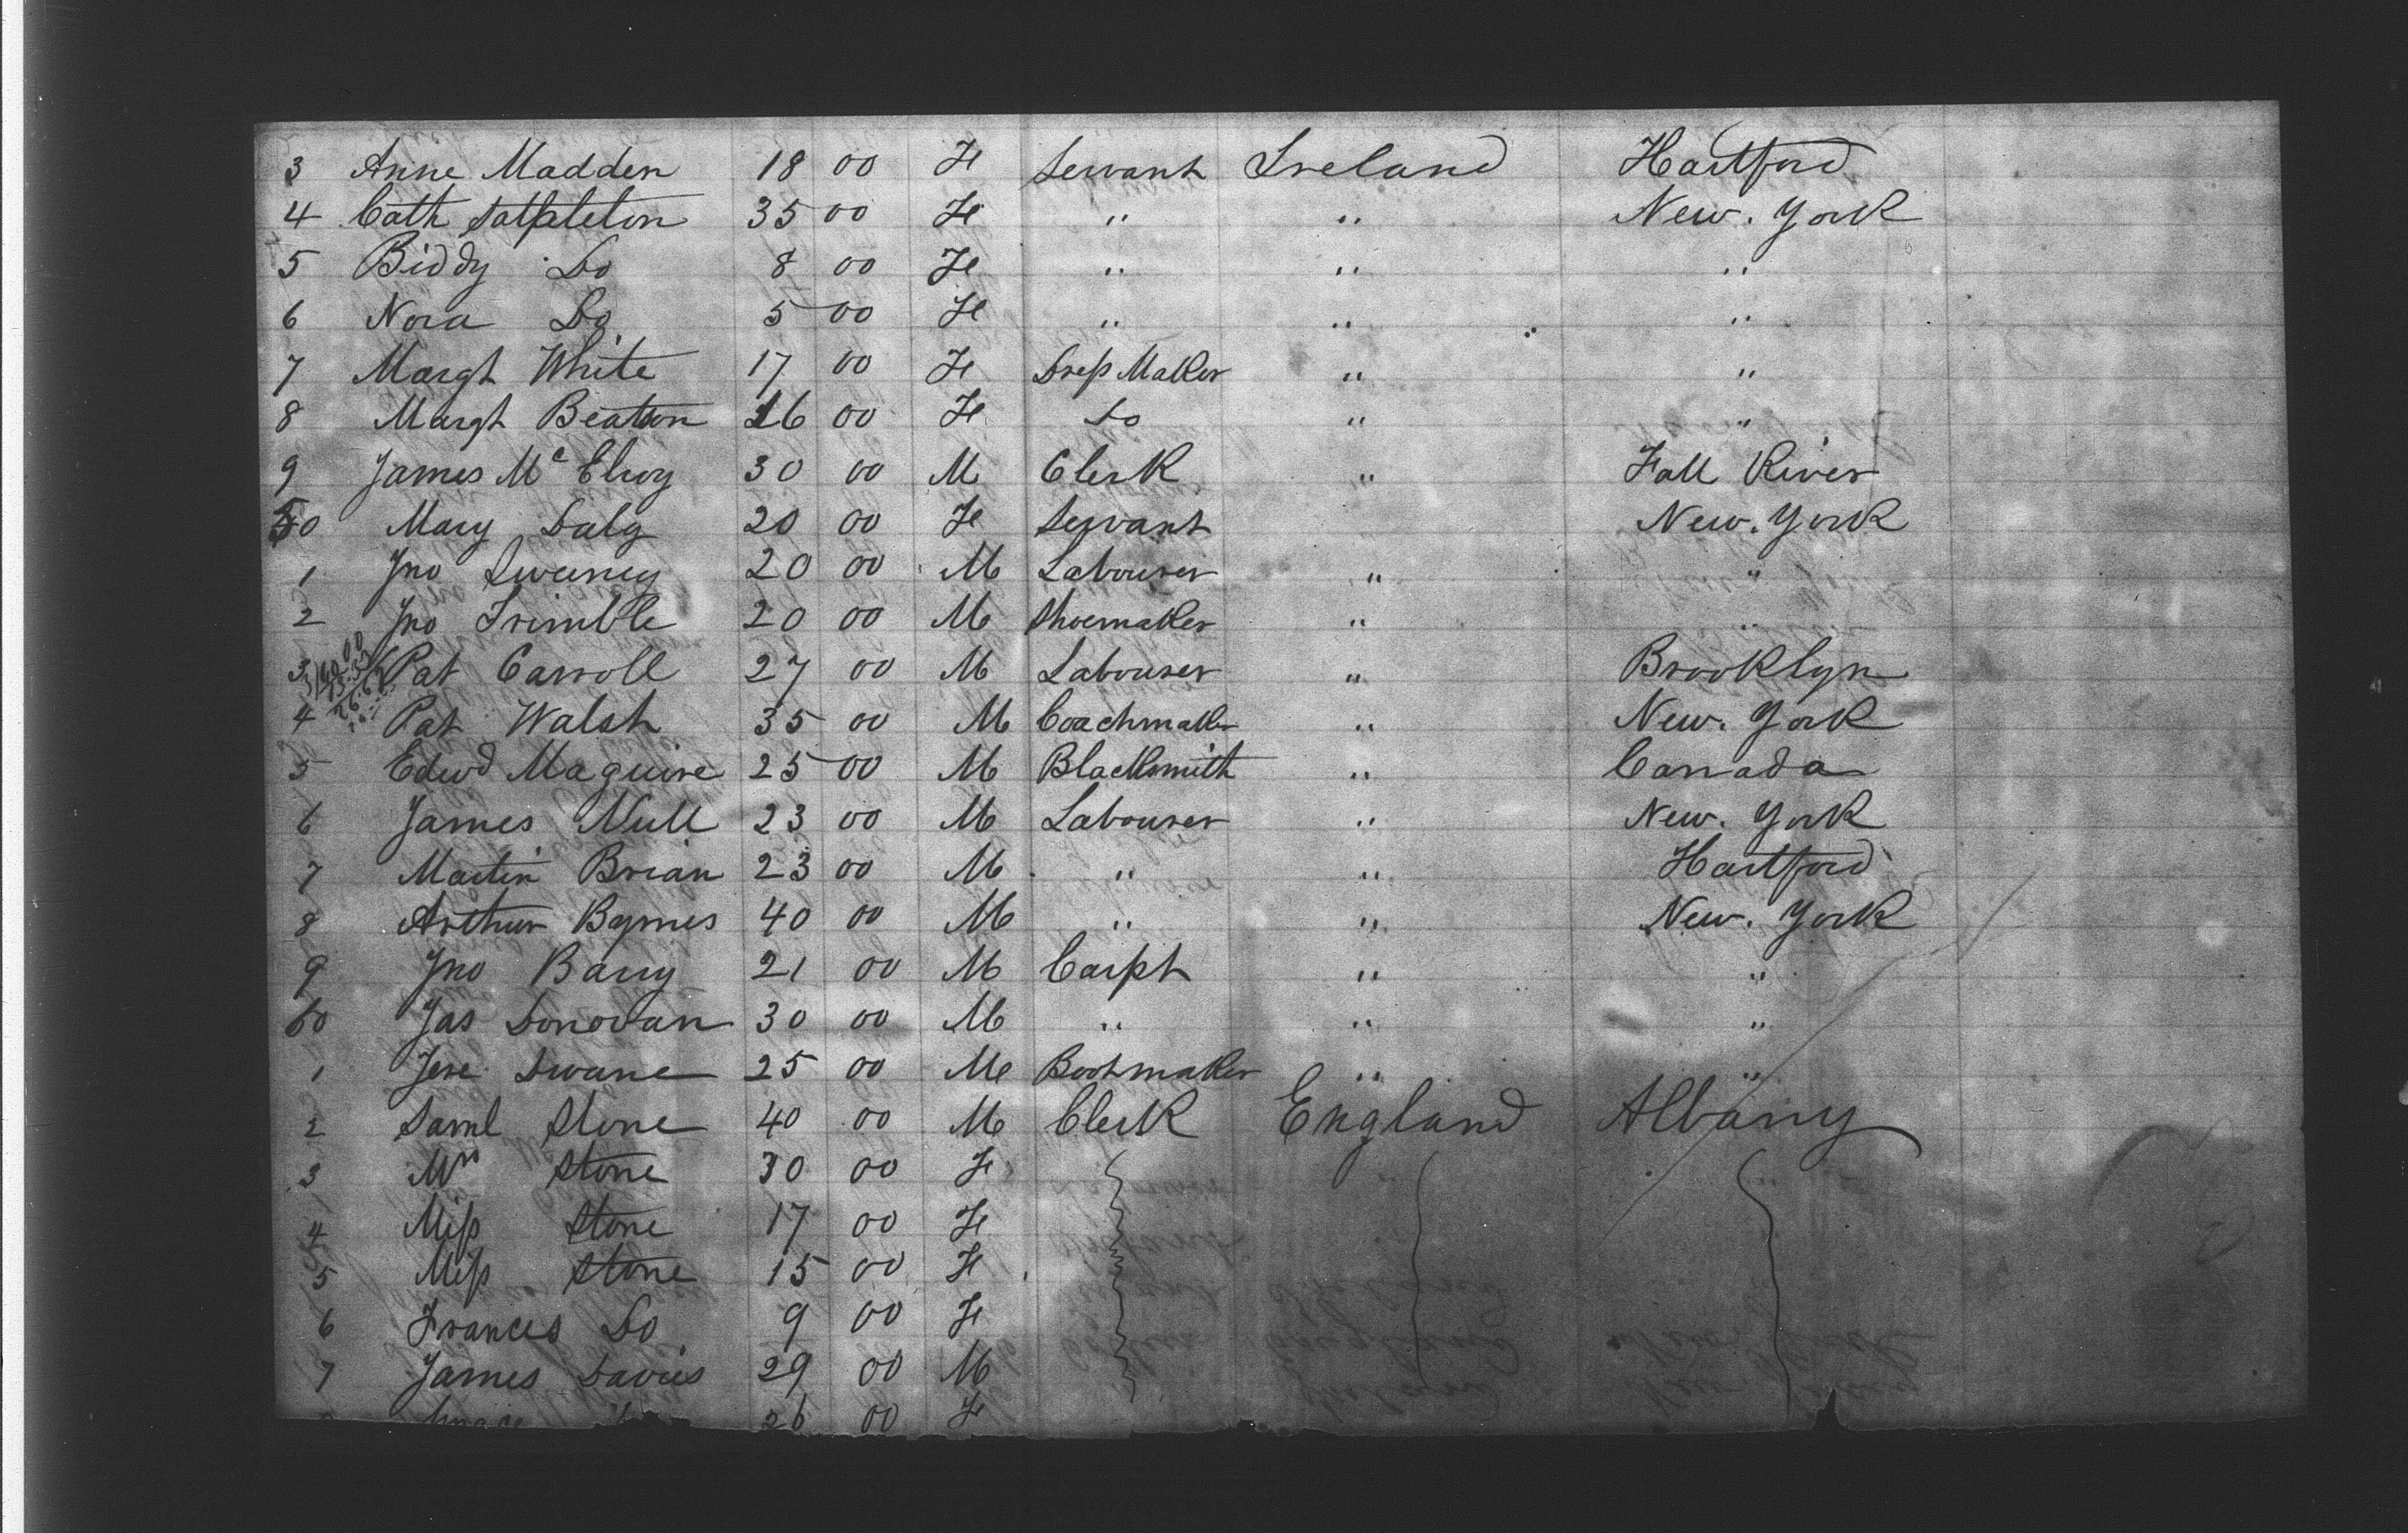 3 Anne Madden 18 00 Fe Servant Ireland Hartford
4 Cath Satpleton 35 00 Fe " " New. York
5 Biddy Do 8 00 Fe " " "
6 Nora Do 5 00 Fe " " "
7 Margt White 17 00 Fe Dress Maker " "
8 Margt Beatton 16 00 Fe Do " "
9 James Mc Elroy 30 00 M Clerk " Fall River
50 Mary Daly 20 00 Fe Servant New. York
1 Jno Sweeney 20 00 M Labourer " "
2 Jno Trimble 20 00 M Shoemaker " "
3 Pat Carroll 27 00 M Labourer " Brooklyn
4 Pat Walsh 35 00 M Coachmaker " New. York
5 Edwd Maguire 25 00 M Blacksmith " Canada
6 James Null 23 00 M Labourer " New. York
7 Martin Brian 23 00 M " " Hartford
8 Arthur Byrnes 40 00 M " " New. York
9 Jno Barry 21 00 M Carpt " "
60 Jas Donovan 30 00 M " " "
1 Jere Dwane 25 00 M Bootmaker " "
2 Saml Stone 40 00 M Clerk England Albany
3 Mrs Stone 30 00 Fe
4 Miss Stone 17 00 Fe
5 Miss Stone 15 00 Fe
6 Frances Do 9 00 Fe
7 James Davies 29 00 M
26 00 Fe